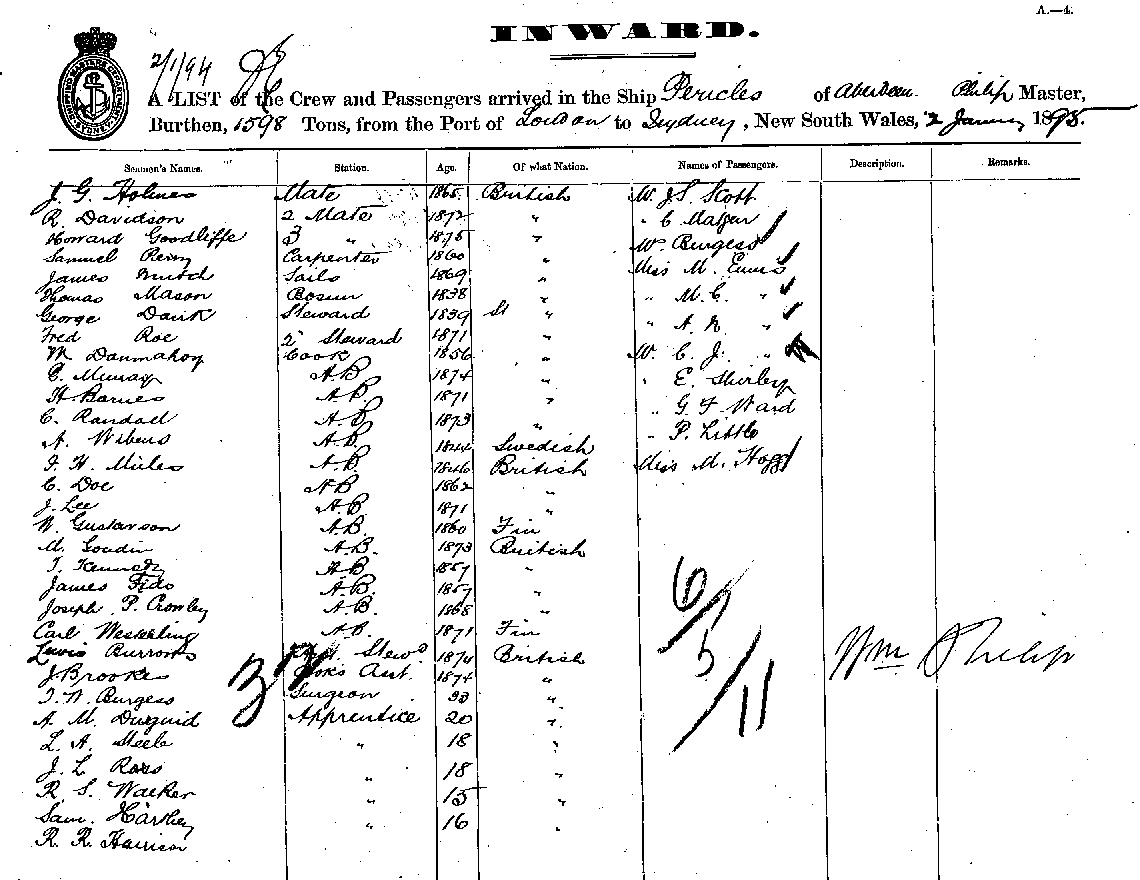 A.—4.
INWARD.
2/1/94
A LIST of the Crew and Passengers arrived in the Ship Pericles of Aberdeen Philip Master,
Burthen, 1598 Tons, from the Port of London to Sydney, New South Wales, 2 January 1895.
Seamen's Names. Station. Age. Of what Nation. Names of Passengers. Description. Remarks.
J. G. Holmes Mate 1865 British W. J. S. Scott
R. Davidson 2 Mate 1872 " "
Howard Goodliffe 3 " 1875 " W. Burgess
Samuel Carpenter 1860 " Miss M.
James Sails 1869 "
Thomas Mason Bosun 1838 " " M. C. "
George Steward 1839 " " A. "
Fred Roe 2 Steward 1871 "
M Danmahoy Cook 1856 " W. C. J. "
C. Murray A.B. 1874 " " E. Shirley
H Barnes A.B. 1871 " " G F Ward
C. Randall A.B. 1873 " " P. Little
A. A.B. Swedish
J. H. Miles A.B. 1846 British Miss M. Hogg
C. Doe A.B. 1862 "
J. Lee A.B. 1871 "
N. Gustavson A.B. 1860 Fin
M. Goudin A.B. 1873 British
T. Kennedy A.B. 1857 "
James Fido A.B. 1857 "
Joseph P. Cromley A.B. 1868 "
Carl Westerling A.B. 1871 Fin
Lewis Burrows Stew'd 1874 British
J Brookes Cook's Ast. 1874 "
T. W. Burgess Surgeon "
A. M. Duguid Apprentice 20 "
L. A. Steele " 18 "
J. L. Ross " 18 "
R. S. Walker " 15 "
Sam. Hartley " 16 "
R. R. Harrison
6/5/11
Wm Philip